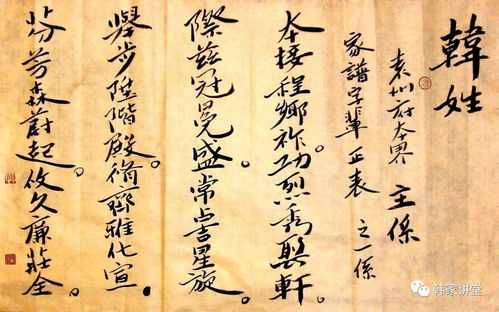 韓姓
袁州府本界 主係
家譜字輩正表 之一係
本接程鄉祚。功烈秀賢軒。
際兹冠冕盛。常占星旋。
舉步陞階殿。脩齊雅化宣。
芬芳森蔚起。攸久廉莊全。
韩家讲堂